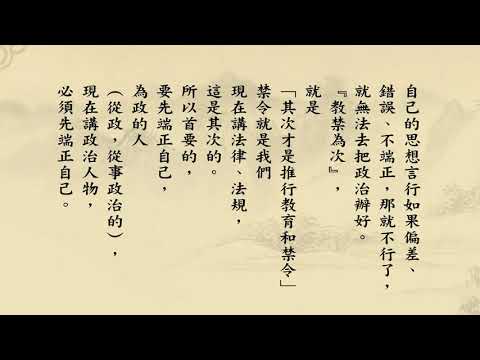 自己的思想言行如果偏差、
錯誤、不端正，那就不行了，
就無法去把政治辦好。
『教禁為次』，
就是
「其次才是推行教育和禁令」
禁令就是我們
現在講法律、法規，
這是其次的。
所以首要的，
要先端正自己，
為政的人
（從政，從事政治的），
現在講政治人物，
必須先端正自己。